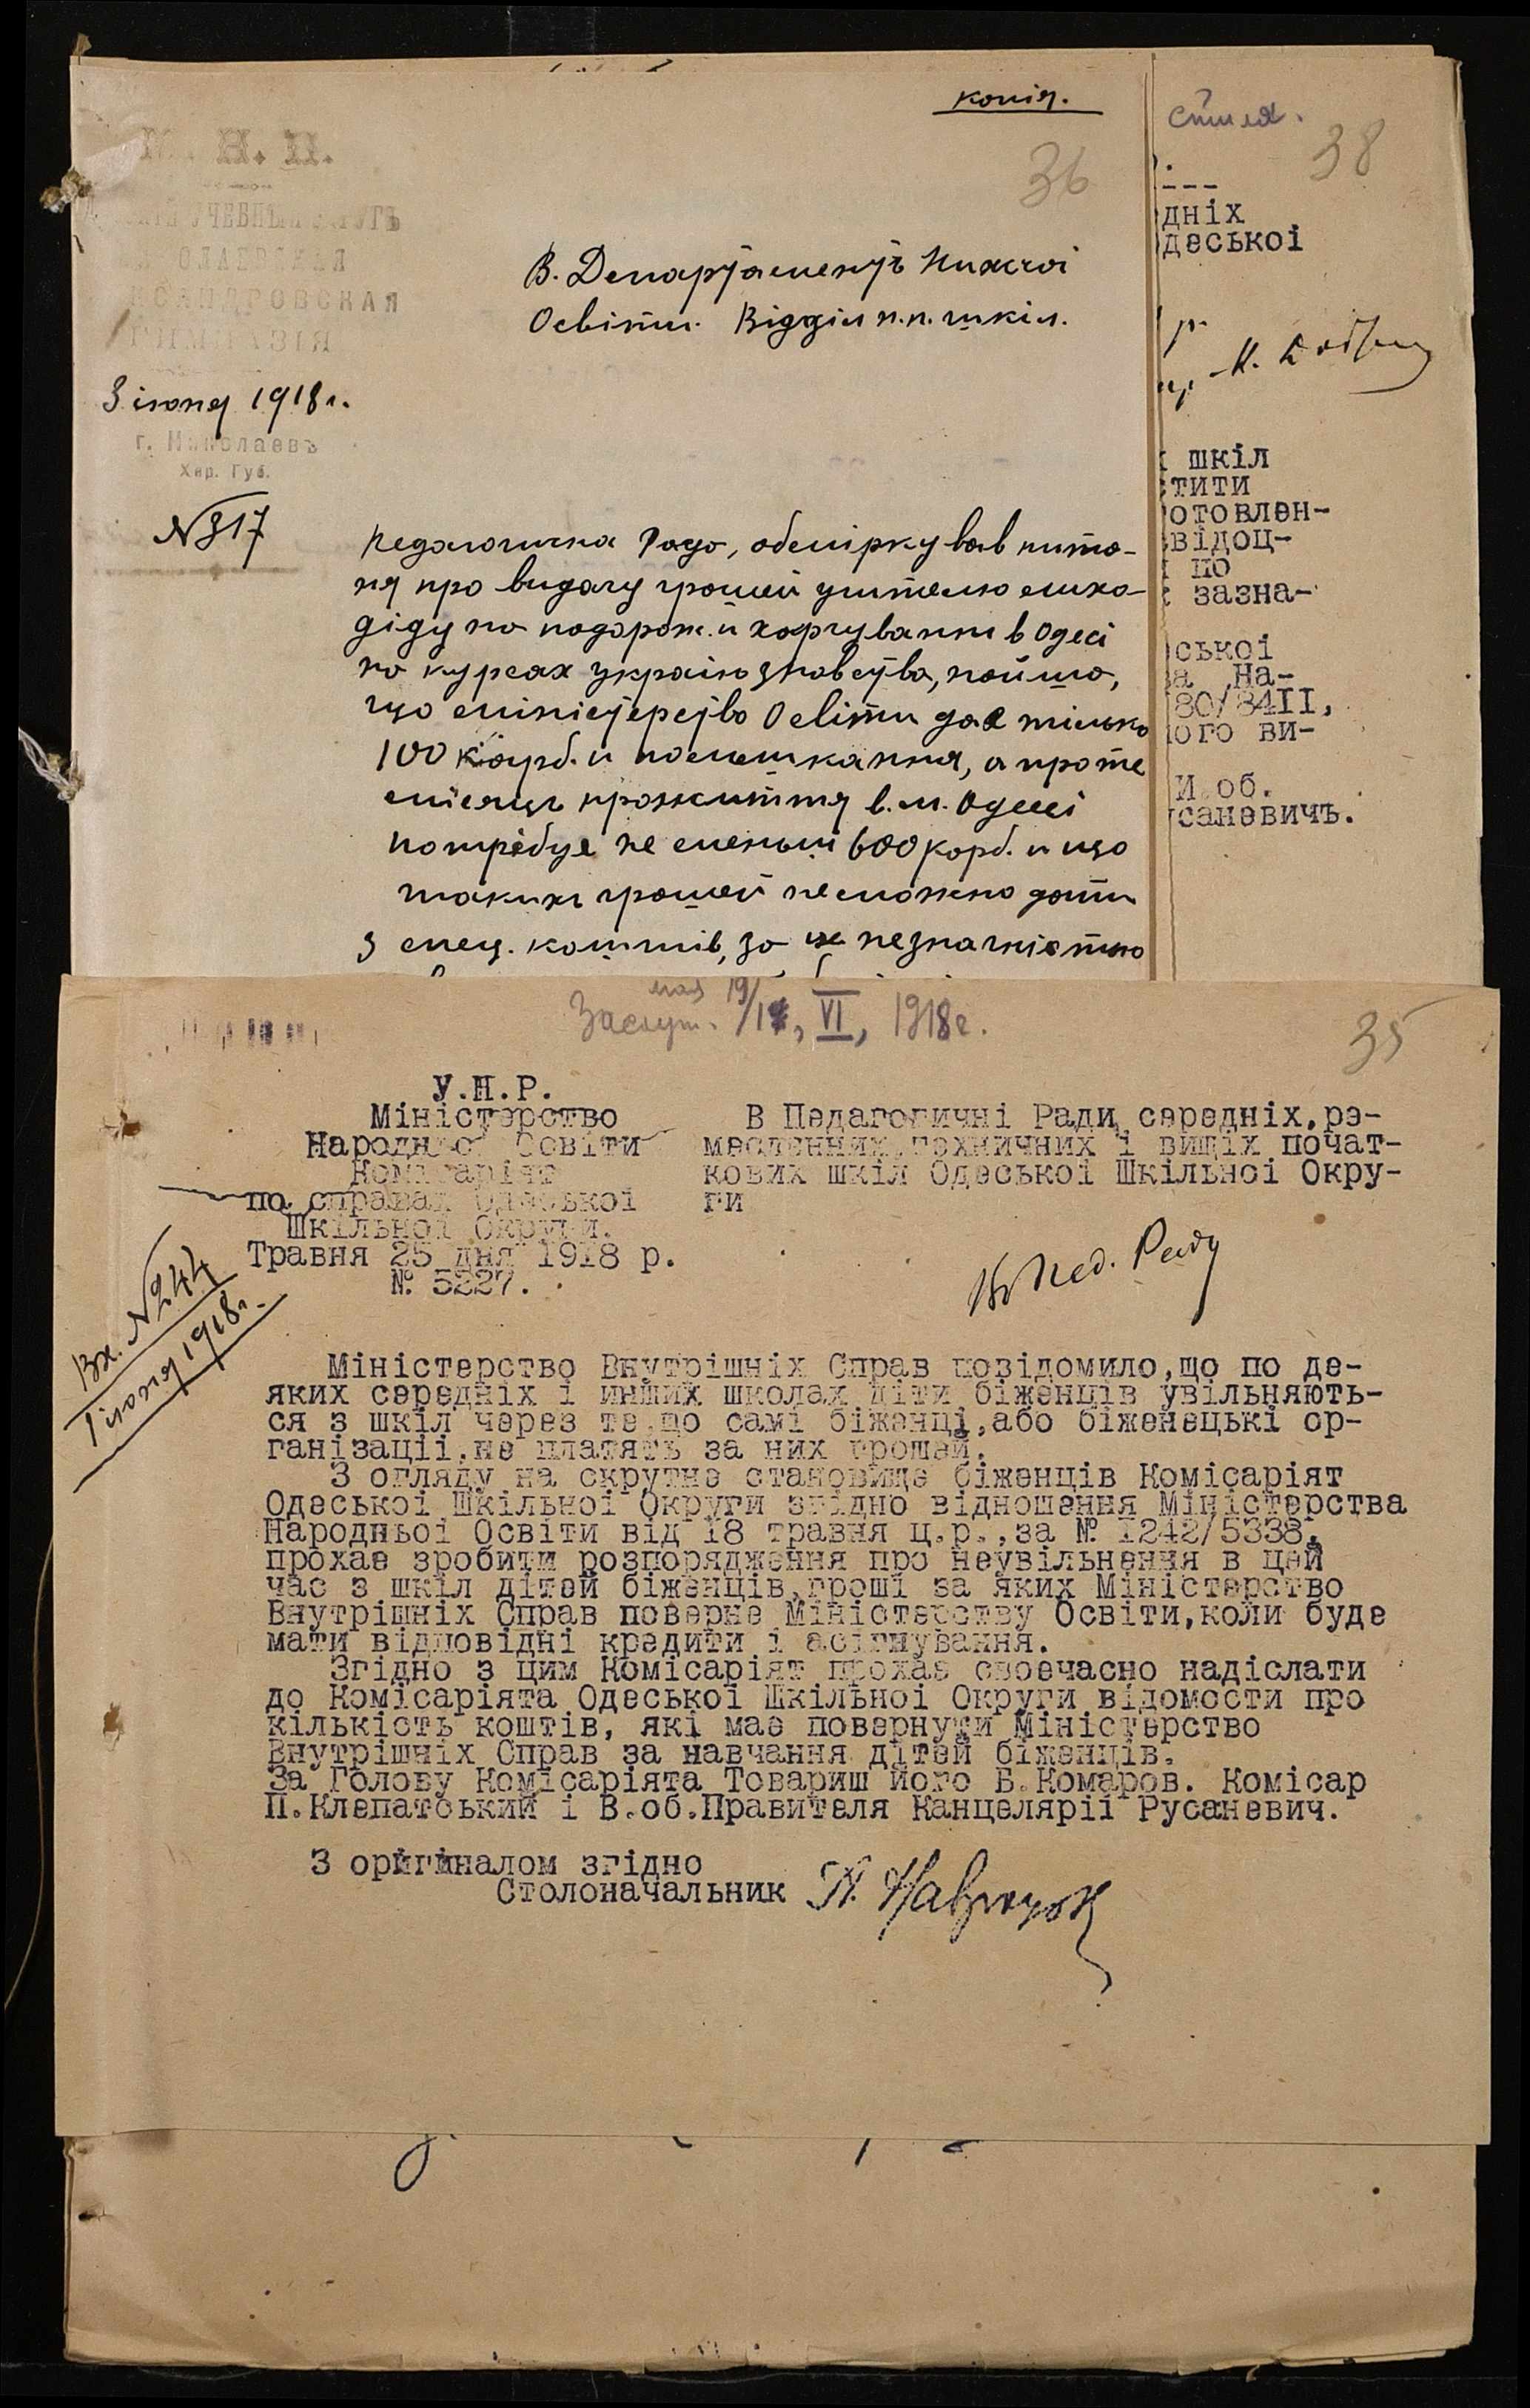 копія.
36
М. Н. П.
УЧЕБНЫЙ ОКРУГЪ
ГИМНАЗІЯ
3 іюня 1918 г.
г. Николаевъ
Хер. Губ.
№ 317
В. Департаментъ Нижчої
Освіти. Віддiл п.п. шкіл.
Педагогична Рада, обміркувавъ пита-
ня про видачу грошей учителю
на подорож. и харчування в Одесі
на курсах українознавства, найшла,
що міністерство Освіти дає тілько
100 карб. и помешкання, а проте
місяць прожиття в. м. Одесі
потрібує не меньш 600 карб. и що
таких грошей не можно дати
з спец. коштів, за їх незначністю
38
дніх
деської
шкіл
тити
отовлен-
відоц-
по
зазна-
ської
а На-
80/8411,
ого ви-
И об.
саневичъ.
Заслуш. 19/VI, 1918 г.
35
У.Н.Р.
Міністерство
Народньої Освіти
Комісаріят
по справах Одеської
Шкільної Округи.
Травня 25 дня 1918 р.
№ 5227.
Вх. № 244
іюня 1918 г.
В Педагогичні Ради середніх, ре-
месленних, техничних і вищіх почат-
кових шкіл Одеської Шкільної Окру-
ги
В Пед. Раду
Міністерство Внутрішніх Справ повідомило, що по де-
яких середніх і инших школах діти біженців увільняють-
ся з шкіл через те, що самі біженці, або біженецькі ор-
ганізації, не платять за них грошей.
З огляду на скрутне становище біженців Комісаріят
Одеської Шкільної Округи згідно відношення Міністерства
Народньої Освіти від 18 травня ц.р., за № 1242/5338,
прохає зробити розпорядження про неувільнення в цей
час з шкіл дітей біженців, гроші за яких Міністерство
Внутрішніх Справ поверне Міністерству Освіти, коли буде
мати відповідні кредити і асігнування.
Згідно з цим Комісаріят прохає своечасно надіслати
до Комісаріята Одеської Шкільної Округи відомости про
кількість коштів, які має повернути Міністерство
Внутрішніх Справ за навчання дітей біженців.
За Голову Комісаріята Товариш його Б. Комаров. Комісар
П. Клепатський і В.об. Правителя Канцелярії Русаневич.
З оригіналом згідно
Столоначальник